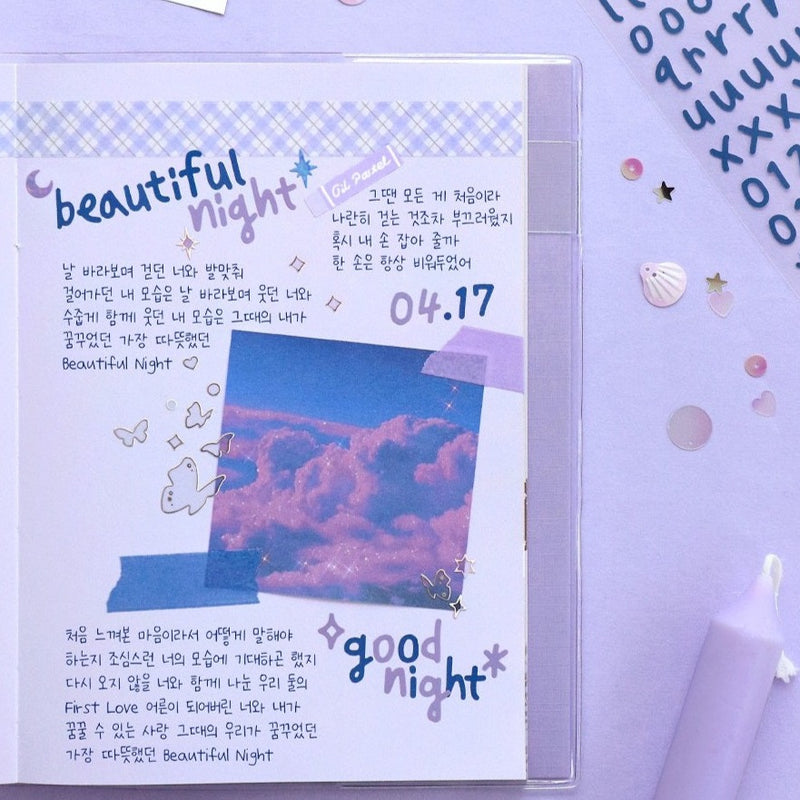 beautiful
night
Oil Pastel
그땐 모든 게 처음이라
나란히 걷는 것조차 부끄러웠지
혹시 내 손 잡아 줄까
한 손은 항상 비워두었어
04.17
날 바라보며 걷던 너와 발맞춰
걸어가던 내 모습은 날 바라보며 웃던 너와
수줍게 함께 웃던 내 모습은 그때의 내가
꿈꾸었던 가장 따뜻했던
Beautiful Night
처음 느껴본 마음이라서 어떻게 말해야
하는지 조심스런 너의 모습에 기대하곤 했지
다시 오지 않을 너와 함께 나눈 우리 둘의
First Love 어른이 되어버린 너와 내가
꿈꿀 수 있는 사랑 그때의 우리가 꿈꾸었던
가장 따뜻했던 Beautiful Night
good
night